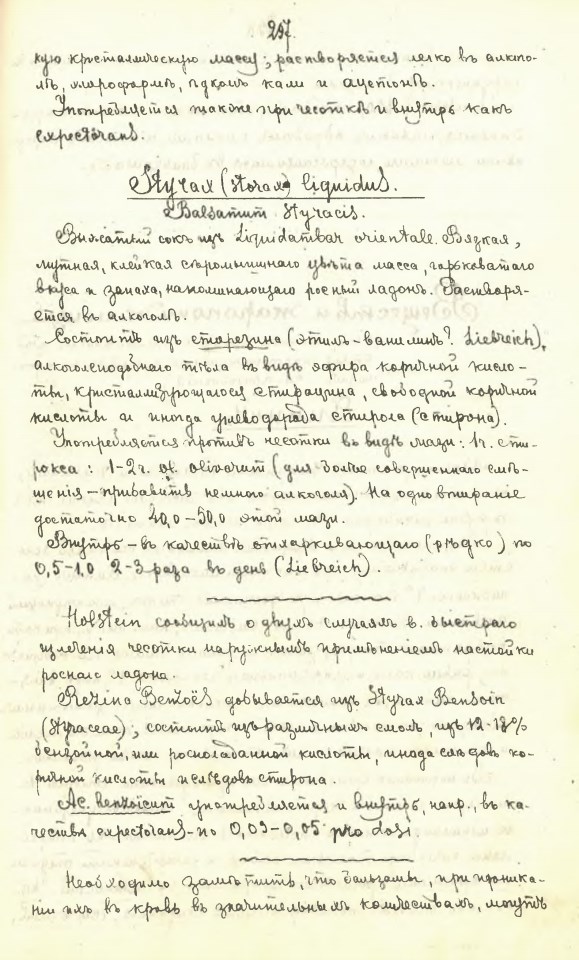 257.
кую кристаллическую массу; растворяется легко въ алкого-
лѣ, хлороформѣ, ѣдкомъ кали и ацетонѣ.
Употребляется также при чесоткѣ и внутрь какъ
expectorans.
Styrax (storax) liquidus.
Balsamum Styracis.
Выжатый сокъ изъ Liquidambar orientale. Вязкая,
мутная, клейкая сѣромышинаго цвѣта масса, горьковатаго
вкуса и запаха, напоминающаго росный ладонъ. Растворя-
ется въ алкоголѣ.
Состоитъ изъ сторезина (этилъ-ванилинъ? Liebreich),
алкоголеподобнаго тѣла въ видѣ эфира коричной кисло-
ты, кристаллизующагося стирацина, свободной коричной
кислоты и иногда углеводорода стирола (стирона).
Употребляется противъ чесотки въ видѣ мази: 1ч. сти-
ракса: 1-2ч. ol. olivarum (для болѣе совершеннаго смѣ-
щенія – прибавить немного алкоголя). На одно втираніе
достаточно 40,0-50,0 этой мази.
Внутрь – въ качествѣ отхаркивающаго (рѣдко) по
0,5-1,0 2-3 раза въ день (Liebreich).
Holstein сообщилъ о двухъ случаяхъ в. быстраго
излеченія чесотки наружнымъ примѣненіемъ настойки
роснаго ладона.
Rezina Benzoës добывается изъ Styrax Bensoin
(Styraceae); состоитъ изъ различныхъ смолъ, изъ 12-13%
бензойной, или росноладанной кислоты, иногда слѣдовъ ко-
ричной кислоты и слѣдовъ стирона.
Ac. benzoicum употребляется и внутрь, напр., въ ка-
чествѣ expectorans – по 0,03-0,05 pro dosi.
Необходимо замѣтить, что бальзамы, при проника-
ніи ихъ въ кровь въ значительныхъ количествахъ, могутъ